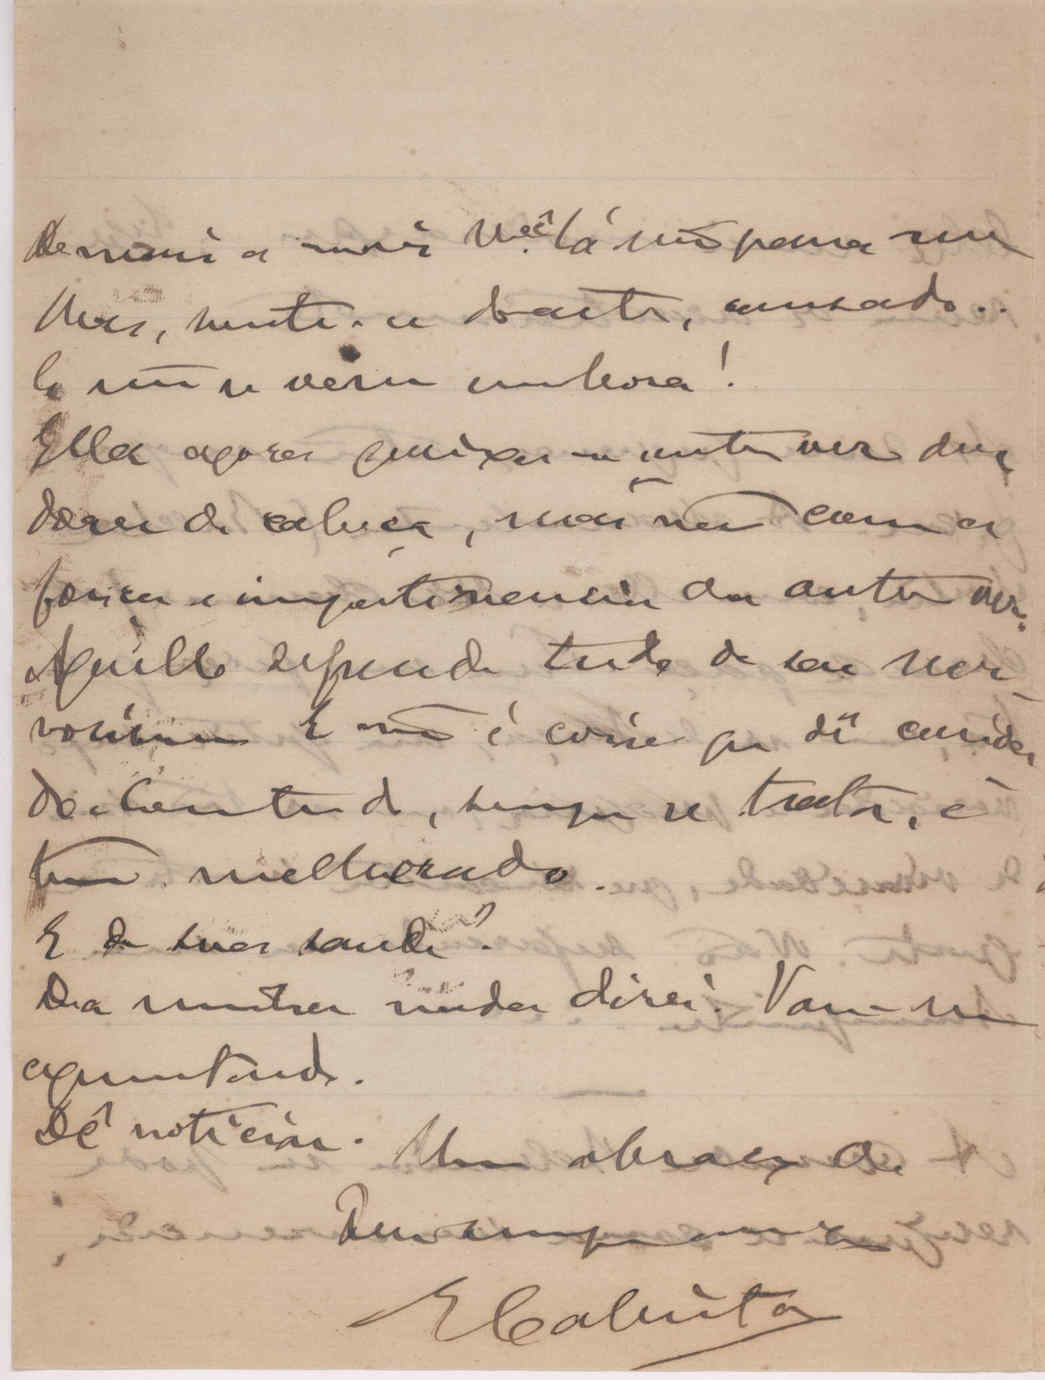 De mais a mais Vcê lá não passa um
Mez, sente-se doente, cansado..
E não se vem embora!
Ella agora queixa-se muita vez das
dores de cabeça, mas não com a
força e impertinencia da outra vez.
Aquillo depende tudo de seu ner-
vosismo E não é coisa que dê cuida
do. Comtudo, sempre se trata, e
tem melhorado.
E da sua saude?
Da minha nada direi. Vou-me
aguentando.
Dê noticias. Um abraço do
Seu sempre
E Calixto